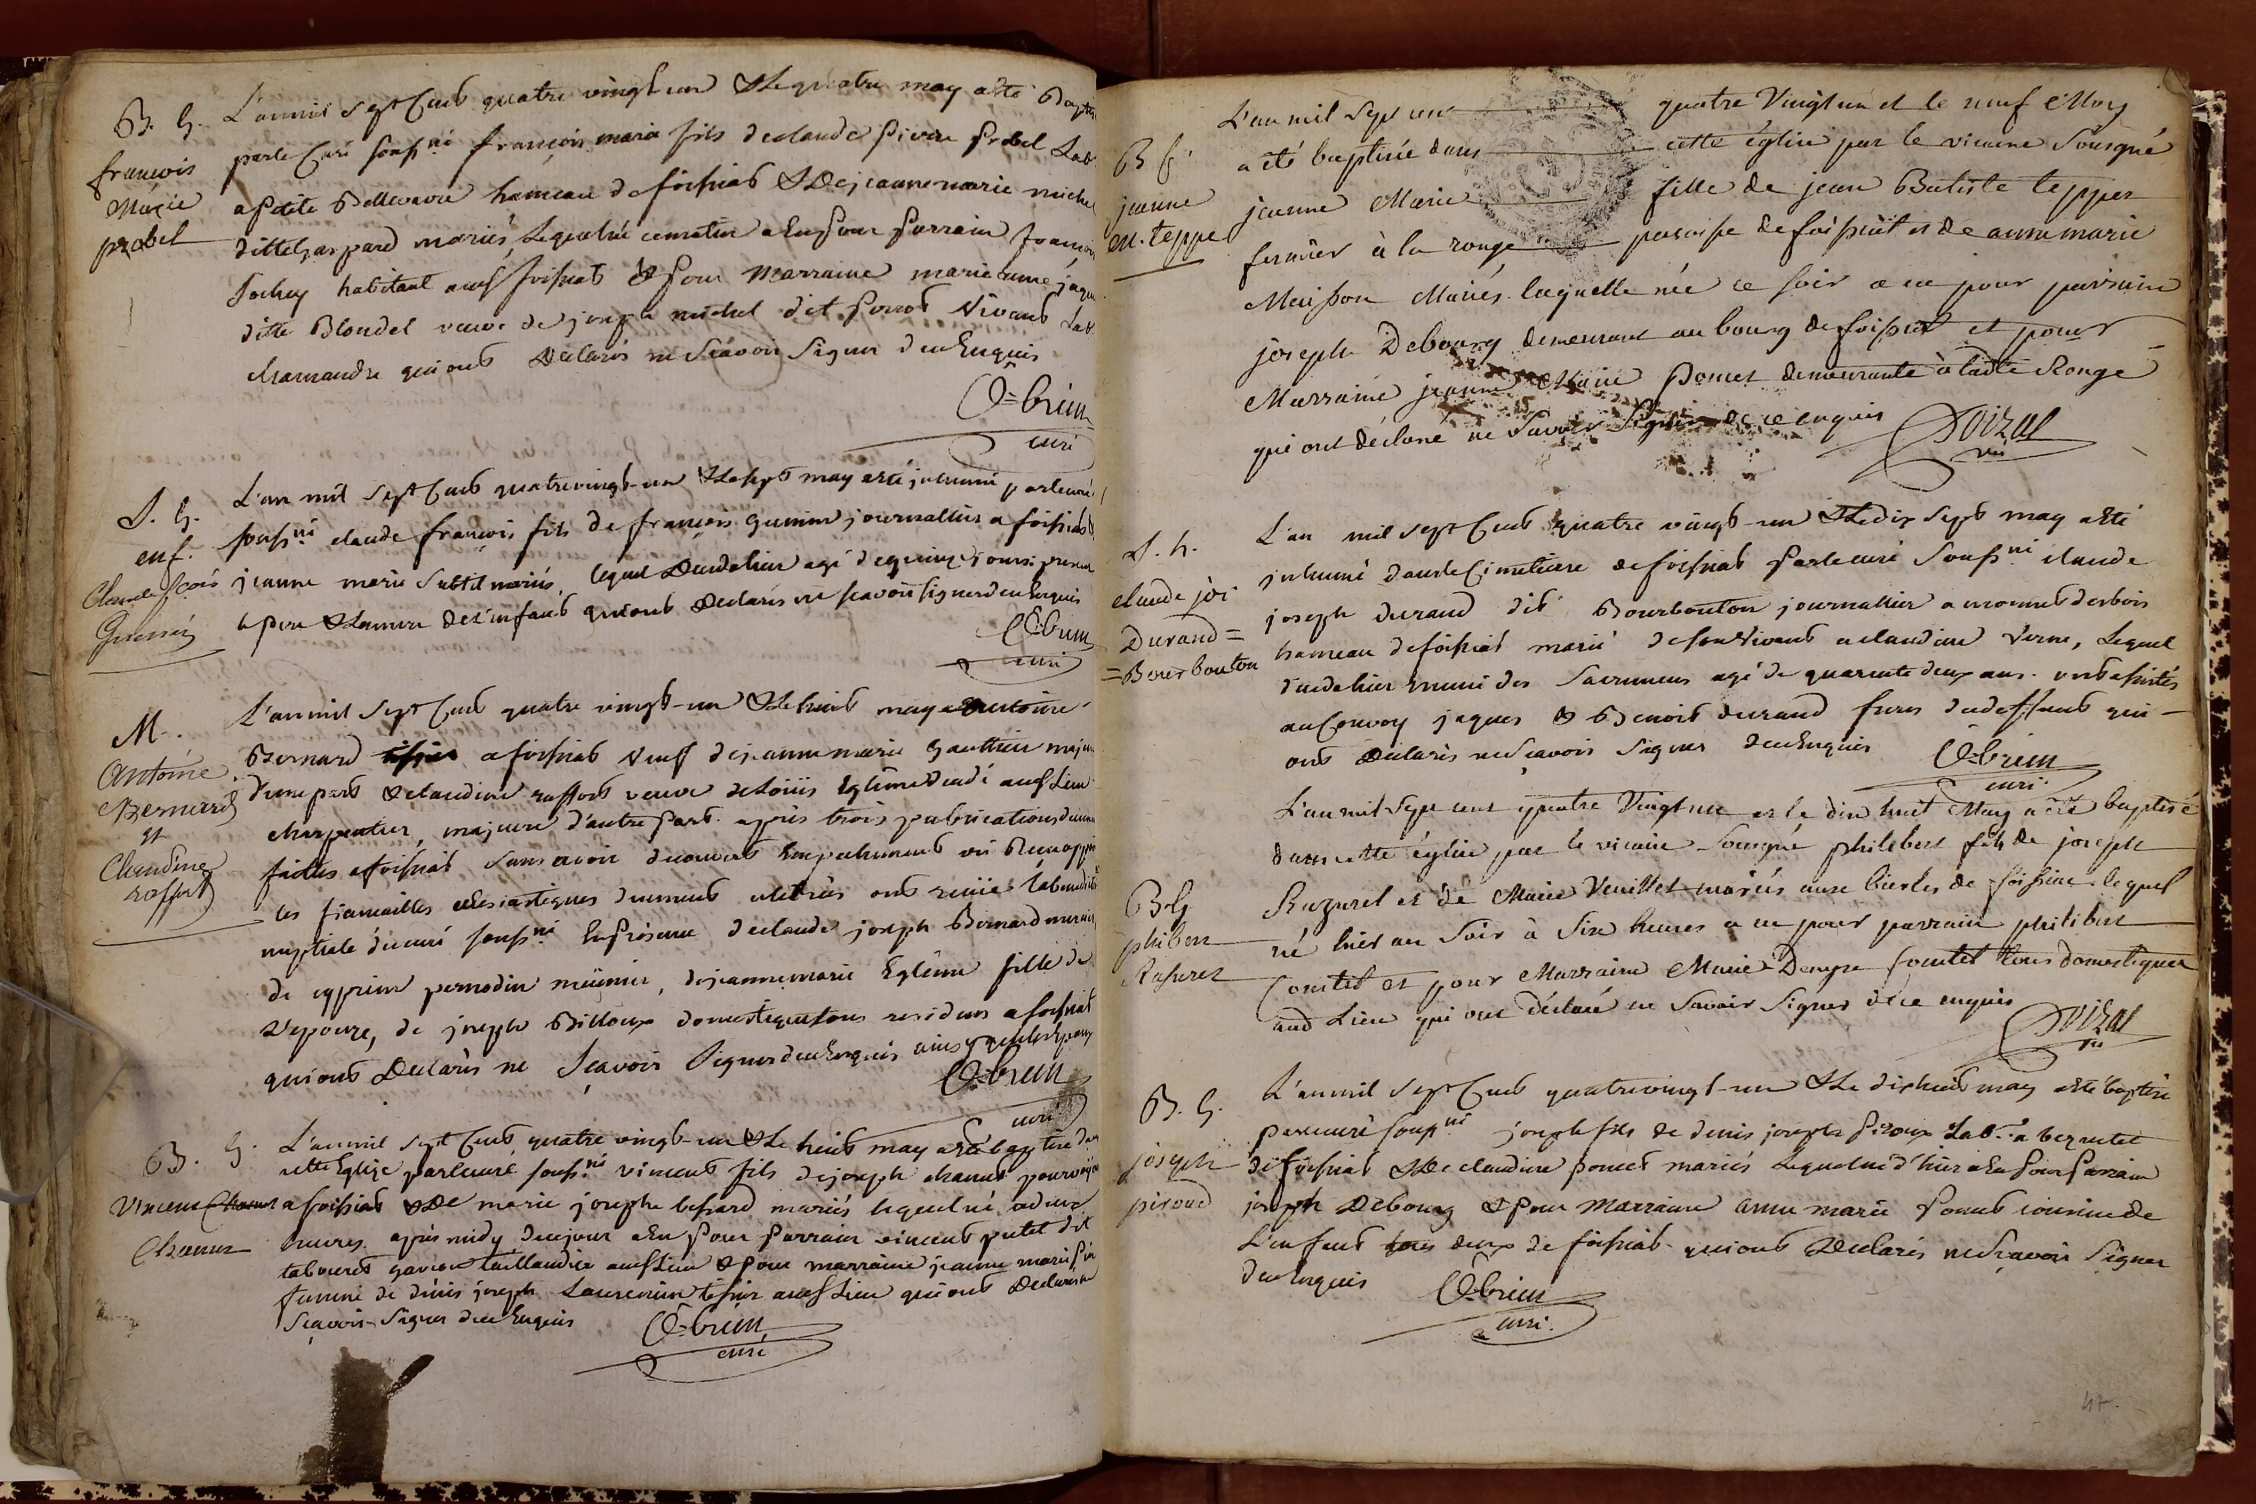 B. G.
francois
Marie
probel
L'an mil sept Cent quatre vingt un & le quatre may a été Baptisé
par le Curé souss.né françois marie fils de claude pierre probel Lab.
a petite Bellevavre hameau de foissiat & De jeanne marie michel
ditte Gaspard mariés Lequel né ce matin a Eu pour parrain francois
Sochey habitant aud. foissiat & pour Marraine marie anne jaque
ditte Blondel veuve de joseph michel dit ponot vivant Lab.
chamandre qui ont Déclarés ne Scavoir Signer de ce Enquis
O=brun
curé
S. G.
enf.
Claude fçois
Guenin
L'an mil sept Cent quatrevingt-un & le sept may a été inhumé par le curé
souss.né claude françois fils de françois guenin journallier a foissiat &
jeanne marie Subtil mariés, lequel Décédé hier agé de quinze jours: presens
le pere & la mere de l'enfant qui ont Déclarés ne scavoir signer de ce Enquis
O=brun
curé
M.
Antoine
Bernard
et
Claudine
raffort
L'an mil sept Cent quatre vingt-un & le huit may Antoine
Bernard tissier a foissiat veuf de jeanne marie Gauthier majeur
d'une part & claudine raffort veuve de Loüis Eglême décédé aud. Lieu
charpentier, majeure d'autre part. après trois publications dument
faittes a foissiat sans avoir decouvert Empechement ni Eu oppos
les fiancailles eclesiastiques dument celebrées ont reçüe la bened.
nuptiale du curé souss.né En présence de claude joseph Bernard
de cyprien pernodin meünier, de jeanne marie Eglême fille de
L'epouse, de joseph Billoux domestique tous residens a foissiat
qui ont Déclarés ne Sçavoir Signer de ce Enquis ainsy que les Epoux
O=brun
curé
B. G.
Vincent Chanut
Chanut
L'an mil sept Cent quatre vingt-un & le huit may a été baptisé dans
cette Eglize par le curé souss.né vincent fils de joseph chanut
a foissiat & de marie joseph bessard mariés lequel né a deux
heures après midy de ce jour a Eu pour parrain vincent putet dit
tabouret garcon taillandier aud. Lieu & pour marraine jeanne marie
femme de dénis joseph Laurencin tissier aud. Lieu qui ont Déclarés ne
Sçavoir Signer de ce Enquis
O=brun
curé
B f
jeanne
M. teppe
L'an mil sept cent quatre Vingt un et le neuf May
a été baptisée dans cette église par le vicaire sousigné
jeanne Marie fille de jean Batiste teppe
fermier à la ronge paroisse de foissiat et de anne marie
Maisson Mariés. laquelle née ce soir a eu pour parrain
joseph Debourg demeurant au bourg de foissiat et pour
Marraine jeanne Marie Poncet demeurante à ladte Ronge
qui ont déclaré ne savoir signer de ce enquis
Doizat
vic
S. h.
claude jos:
Durand=
=Bourbouton
L'an mil sept Cent quatre vingt-un & le dix sept may a été
inhumé dans le Cimetiere de foissiat par le curé Souss.né claude
joseph durand dit Bourbouton journallier a
hameau de foissiat marié de son vivant a claudine verne, Lequel
décédé hier muni des Sacremens agé de quarente deux ans. ont assistés
au Convoy jaques & Benoit durand freres du deffunt qui
ont Déclarés ne Sçavoir Signer de ce Enquis
O=brun
curé
B. G
philbert
Razurel
L'an mil Sept cent quatre Vingt un et le dix huit May a été baptisé
dans cette église par le vicaire sousigné philibert fils de joseph
Razurel et de Marie Veuillet mariés de foissiat lequel
né hier au Soir à Six heures a eu pour parrain philibert
Comtet et pour Marraine Marie Denyse Comtet tous domestiques
aud Lieu qui ont déclaré ne Savoir Signer de ce enquis
Doizat
vic
B. G.
joseph
piroud
L'an mil sept Cent quatrevingt-un & Le dix huit may a été baptisé
par le curé soup.né joseph fils de denis joseph piroux Lab.r a
de foissiat & De claudine poncet mariés Lequel né d'hier a Eu pour parrain
joseph Debourg & pour Marraine anne marie Poncet cousine de
L'enfant tous deux de foissiat qui ont Déclarés ne Scavoir Signer
de ce Enquis
O=brun
curé.